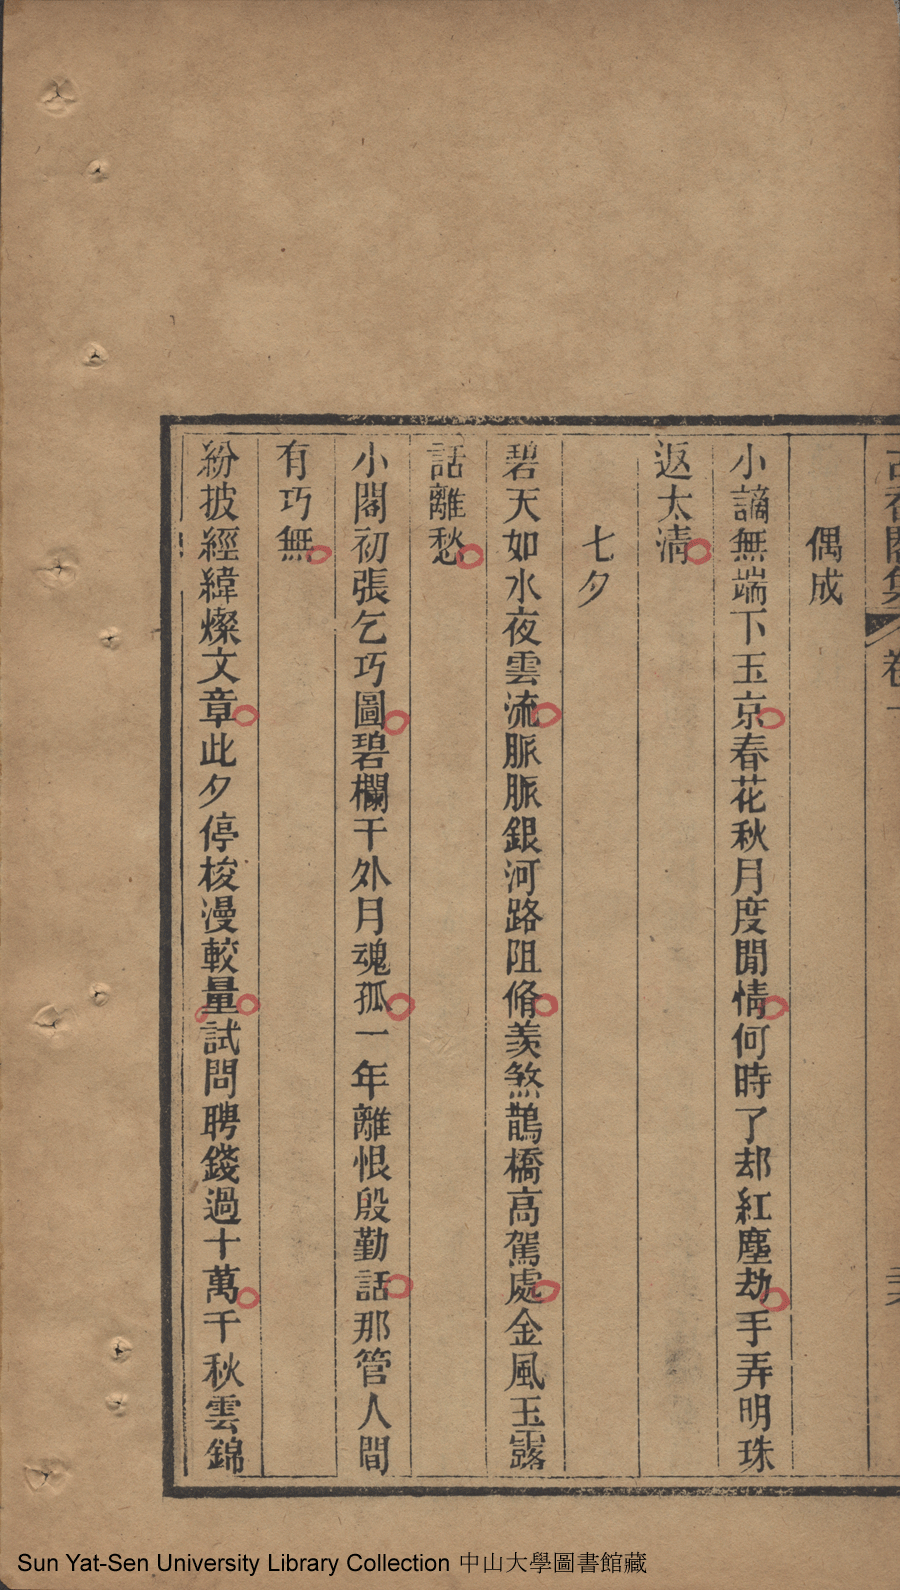 古香閣集 卷一
偶成
小謫無端下玉京春花秋月度閒情何時了却紅塵劫手弄明珠
返太清
七夕
碧天如水夜雲流脈脈銀河路阻脩羡煞鵲橋高駕處金風玉露
話離愁
小閣初張乞巧圖碧欄干外月魂孤一年離恨殷勤話那管人間
有巧無
紛披經緯燦文章此夕停梭漫較量試問聘錢過十萬千秋雲錦
Sun Yat-Sen University Library Collection 中山大學圖書館藏